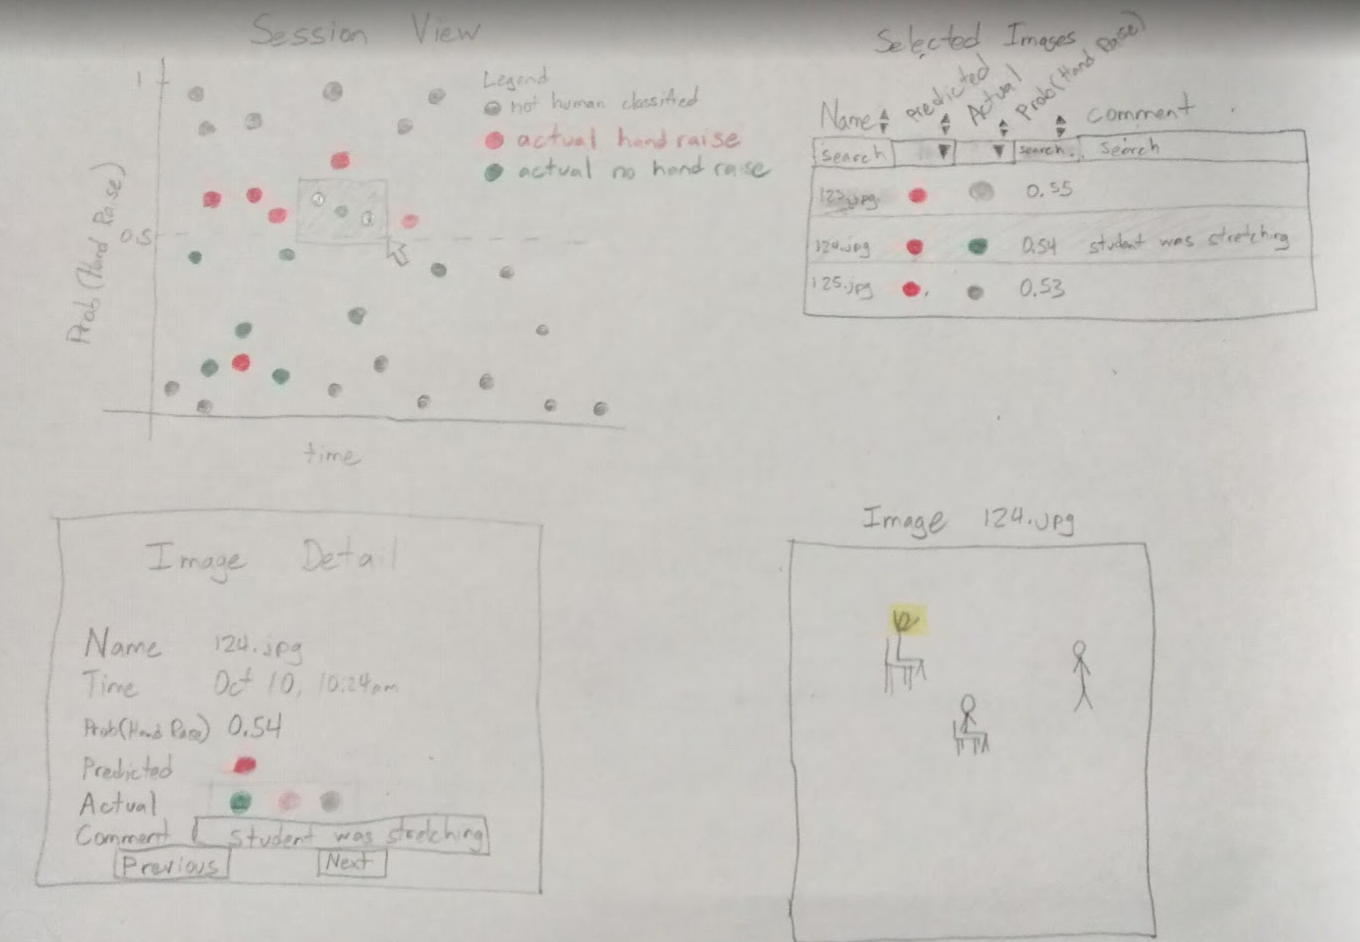 Session View
1
0.5
Prob(Hand Raise)
time
Legend
not human classified
actual hand raise
actual no hand raise
Selected Images
Name predicted Actual Prob(Hand Raise) comment
search search. search
123.jpg 0.55
124.jpg 0.54 student was stretching
125.jpg 0.53
Image Detail
Name 124.jpg
Time Oct 10, 10:24am
Prob(Hand Raise) 0.54
Predicted
Actual
Comment Student was stretching
Previous Next
Image 124.jpg